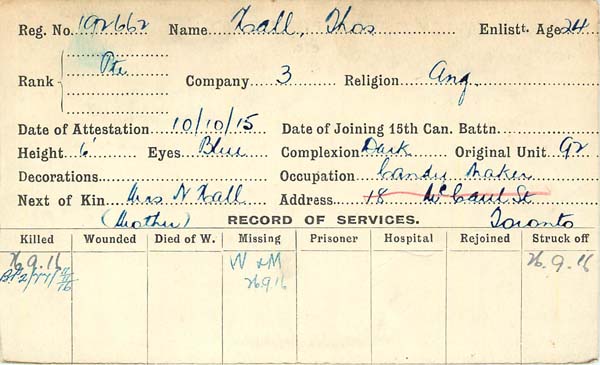 Reg. No. 192662 Name Hall, Thos Enlistt. Age 24
Rank Pte Company 3 Religion Ang.
Date of Attestation 10/10/15 Date of Joining 15th Can. Battn.
Height 6' Eyes Blue Complexion Dark Original Unit 92
Decorations Occupation Candy Maker
Next of Kin Mrs. N Hall Address 18 McCaul St
(Mother) RECORD OF SERVICES. Toronto
Killed Wounded Died of W. Missing Prisoner Hospital Rejoined Struck off
26.9.16 W & M 26.9.16
26916